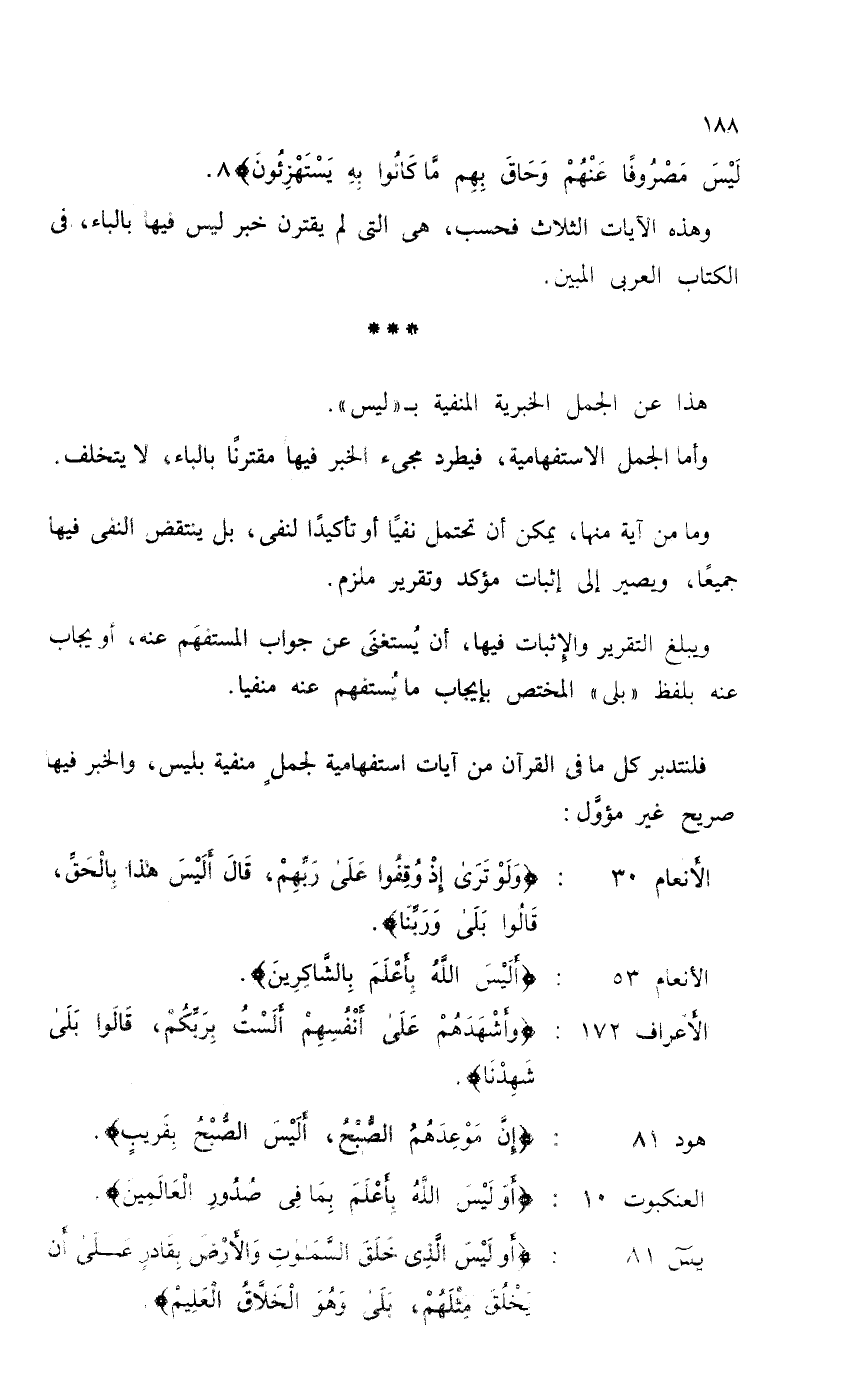 ١٨٨
لَيْسَ مَصْرُوفًا عَنْهُمْ وَحَاقَ بِهِم مَّا كَانُوا بِهِ يَسْتَهْزِئُونَ﴾٨.
وهذه الآيات الثلاث فحسب، هى التى لم يقترن خبر ليس فيها بالباء، فى
الكتاب العربى المبين.
***
هذا عن الجمل الخبرية المنفية بـ«ليس».
وأما الجمل الاستفهامية، فيطرد مجىء الخبر فيها مقترنًا بالباء، لا يتخلف.
وما من آية منها، يمكن أن تحتمل نفيًا أو تأكيدًا لنفى، بل ينتقض النفى فيها
جميعًا، ويصير إلى إثبات مؤكد وتقرير ملزم.
ويبلغ التقرير والإِثبات فيها، أن يُستغنَى عن جواب المستفهَم عنه، أو يجاب
عنه بلفظ «بلى» المختص بإيجاب ما يُستفهم عنه منفيا.
فلنتدبر كل ما فى القرآن من آيات استفهامية لجملٍ منفية بليس، والخبر فيها
صريح غير مؤوَّل:
الأَنعام ٣٠ : ﴿وَلَوْ تَرَىٰ إِذْ وُقِفُوا عَلَىٰ رَبِّهِمْ، قَالَ أَلَيْسَ هٰذَا بِالْحَقِّ،
قَالُوا بَلَىٰ وَرَبِّنَا﴾.
الأنعام ٥٣ : ﴿أَلَيْسَ اللَّهُ بِأَعْلَمَ بِالشَّاكِرِينَ﴾.
الأَعراف ١٧٢ : ﴿وأَشْهَدَهُمْ عَلَىٰ أَنْفُسِهِمْ أَلَسْتُ بِرَبِّكُمْ، قَالُوا بَلَىٰ
شَهِدْنَا﴾.
هود ٨١ : ﴿إِنَّ مَوْعِدَهُمُ الصُّبْحُ، أَلَيْسَ الصُّبْحُ بِقَرِيبٍ﴾.
العنكبوت ١٠ : ﴿أَوَ لَيْسَ اللَّهُ بِأَعْلَمَ بِمَا فِى صُدُورِ الْعَالَمِينَ﴾.
يسٓ ٨١ : ﴿أَو لَيْسَ الَّذِى خَلَقَ السَّمَـٰوَٰتِ وَالْأَرْضَ بِقَادِرٍ عَـلَىٰ أَن
يَخْلُقَ مِثْلَهُمْ، بَلَىٰ وَهُوَ الْخَلَّاقُ الْعَلِيمُ﴾.